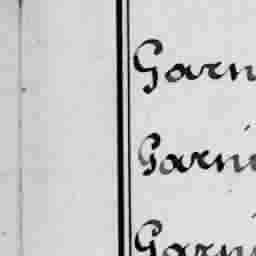 Garn
Garni
Garni